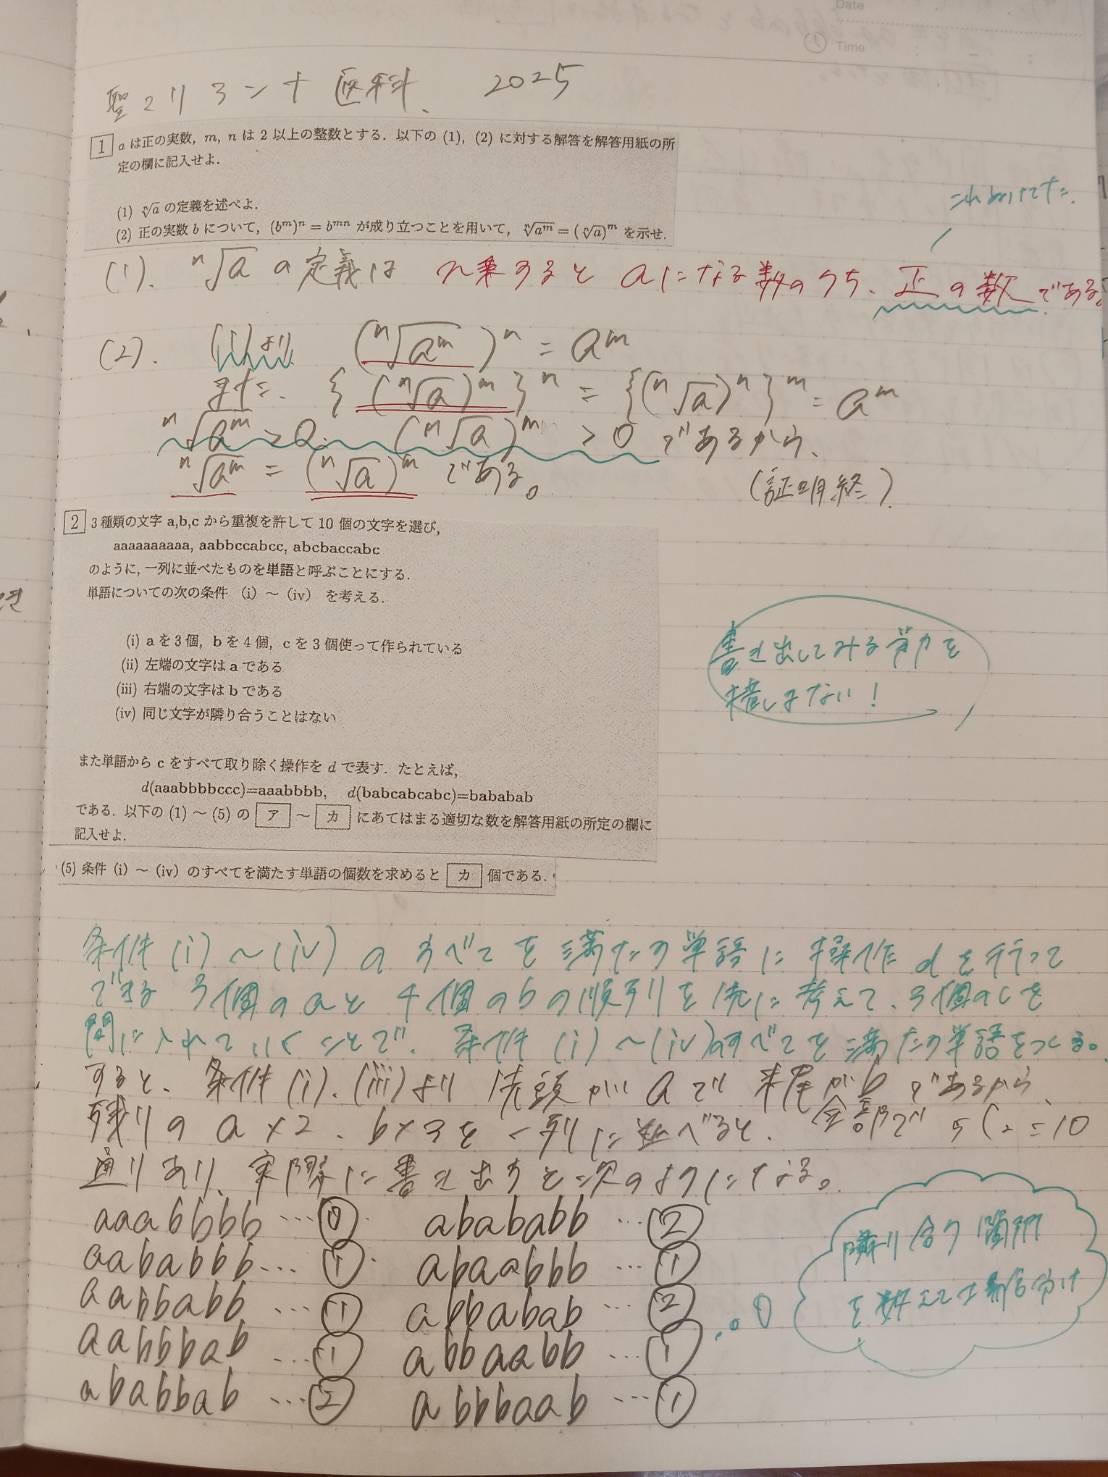 Date
Time
聖マリアンナ医科、 2025
1 aは正の実数，m, n は 2 以上の整数とする．以下の (1)，(2) に対する解答を解答用紙の所
定の欄に記入せよ．
(1) ⁿ√a の定義を述べよ．
(2) 正の実数 b について，(b^m)^n = b^{mn} が成り立つことを用いて，ⁿ√(a^m) = (ⁿ√a)^m を示せ．
(1). ⁿ√a の定義は n乗するとaになる数のうち、正の数である。
(2). (1)より (ⁿ√(a^m))^n = a^m
また、{(ⁿ√a)^m}^n = {(ⁿ√a)^n}^m = a^m
ⁿ√(a^m) > 0. (ⁿ√a)^m > 0 であるから、
ⁿ√(a^m) = (ⁿ√a)^m である。
(証明終)
2 3 種類の文字 a,b,c から重複を許して 10 個の文字を選び,
aaaaaaaaaa, aabbccabcc, abcbaccabc
のように, 一列に並べたものを単語と呼ぶことにする.
単語についての次の条件 (i) ～ (iv) を考える.
(i) a を 3 個, b を 4 個, c を 3 個使って作られている
(ii) 左端の文字は a である
(iii) 右端の文字は b である
(iv) 同じ文字が隣り合うことはない
書き出してみる労力を
惜しまない！
また単語から c をすべて取り除く操作を d で表す. たとえば,
d(aaabbbbccc)=aaabbbb, d(babcabcabc)=bababab
である. 以下の (1) ～ (5) の ア ～ カ にあてはまる適切な数を解答用紙の所定の欄に
記入せよ.
(5) 条件 (i) ～ (iv) のすべてを満たす単語の個数を求めると カ 個である.
条件(i)～(iv)のすべてを満たす単語に操作dを行って
できる3個のaと4個のbの順列を先に考えて、3個のcを
間に入れていくことで、条件(i)～(iv)のすべてを満たす単語をつくる。
すると、条件(i).(iii)より先頭がaで末尾がbであるから、
残りのa×2、b×3を一列に並べると、全部で ₅C₂=10
通りあり、実際に書き出すと次のようになる。
aaabbbb … ⓪ abababb … ②
aababbb … ① abaabbb … ①
aabbabb … ① abbabab … ②
aabbbab … ① abbaabb … ①
ababbab … ② abbbaab … ①
隣り合う箇所
を数えて場合分け